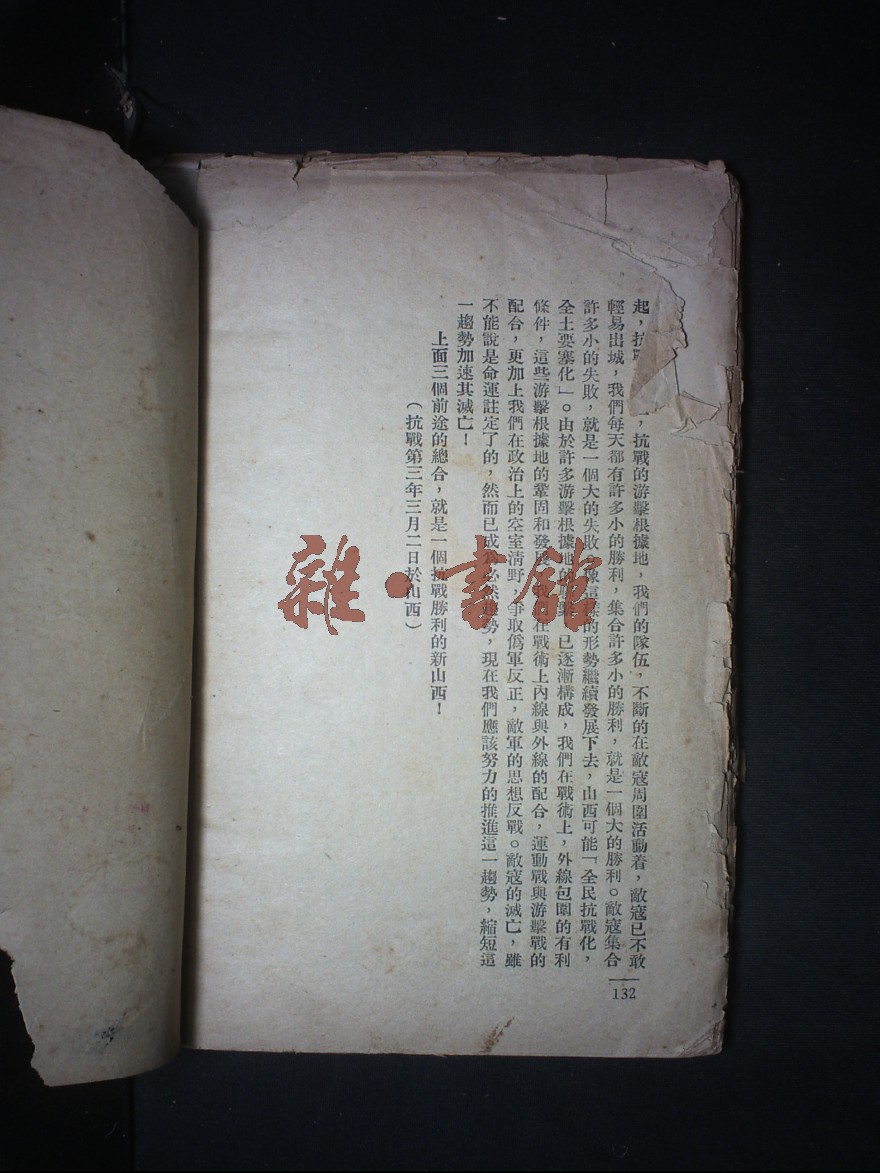 起，抗戰，抗戰的游擊根據地，我們的隊伍，不斷的在敵寇周圍活動着，敵寇已不敢
輕易出城，我們每天都有許多小的勝利，集合許多小的勝利，就是一個大的勝利。敵寇集合
許多小的失敗，就是一個大的失敗。像這樣的形勢繼續發展下去，山西可能「全民抗戰化，
全土要塞化」。由於許多游擊根據地的，已逐漸構成，我們在戰術上，外線包圍的有利
條件，這些游擊根據地的鞏固和發展，我們在戰術上內線與外線的配合，運動戰與游擊戰的
配合，更加上我們在政治上的空室清野，爭取僞軍反正，敵軍的思想反戰。敵寇的滅亡，雖
不能說是命運註定了的，然而已成爲必然趨勢，現在我們應該努力的推進這一趨勢，縮短這
一趨勢加速其滅亡！
上面三個前途的總合，就是一個抗戰勝利的新山西！
（抗戰第三年三月二日於山西）
132
雜·書館